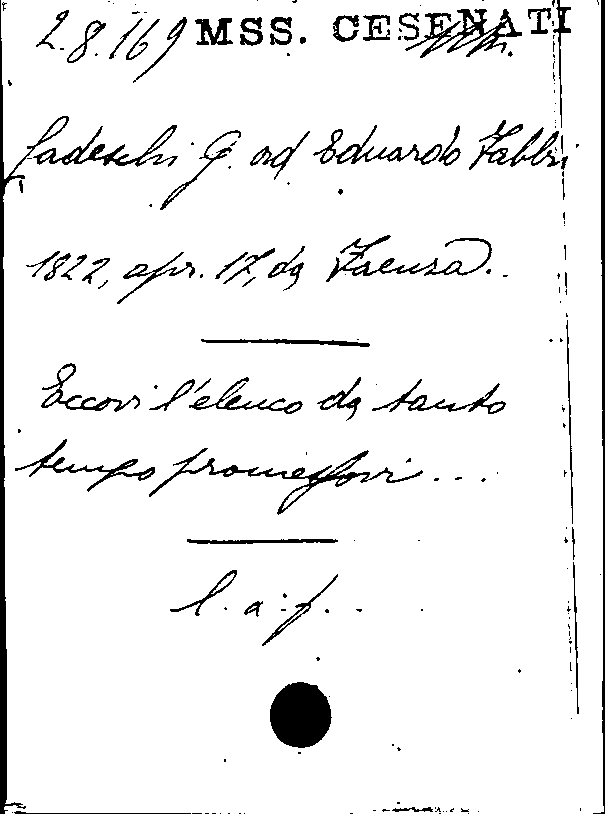 2.8.169 MSS. CESENATI
Ladeschi G. ad Eduardo Fabbri
1822, apr. 17, da Faenza.
Eccovi l'elenco da tanto
tempo promessovi ...
l. a. f.